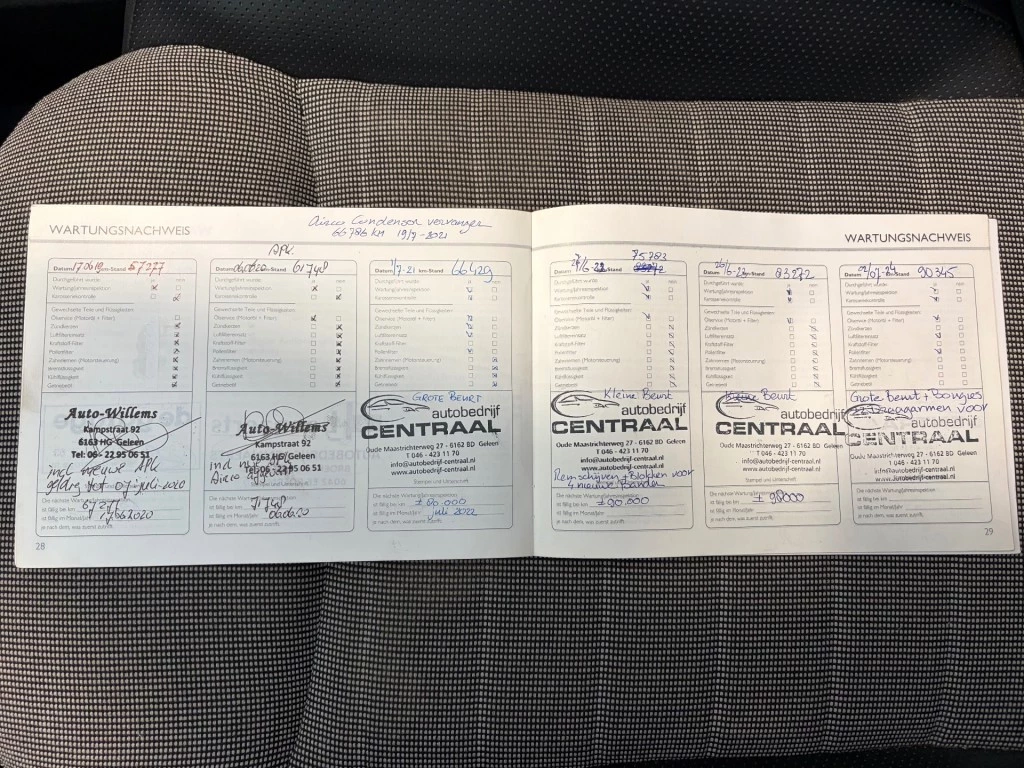 WARTUNGSNACHWEIS
Airco Condensor vervangen
66786 KM 19/7-2021
Datum 170619 km-Stand 57277
Durchgeführt wurde: ja nein
Wartung/Jahresinspektion
Karosseriekontrolle
Gewechselte Teile und Flüssigkeiten:
Ölservice (Motoröl + Filter)
Zündkerzen
Luftfiltereinsatz
Kraftstoff-Filter
Pollenfilter
Zahnriemen (Motorsteuerung)
Bremsflüssigkeit
Kühlflüssigkeit
Getriebeöl
Auto-Willems
Kampstraat 92
6163 HG Geleen
Tel: 06 - 22 95 06 51
incl nieuwe APK
Die nächste Wartung
ist fällig bei km 67277
ist fällig im Monat/Jahr 17062020
je nach dem, was zuerst zutrifft.
28
APK
Datum 060620 km-Stand 61748
Durchgeführt wurde: ja nein
Wartung/Jahresinspektion
Karosseriekontrolle
Gewechselte Teile und Flüssigkeiten:
Ölservice (Motoröl + Filter)
Zündkerzen
Luftfiltereinsatz
Kraftstoff-Filter
Pollenfilter
Zahnriemen (Motorsteuerung)
Bremsflüssigkeit
Kühlflüssigkeit
Getriebeöl
Auto-Willems
Kampstraat 92
6163 HG Geleen
Tel: 06 - 22 95 06 51
Airco
Die nächste Wartung
ist fällig bei km 71748
ist fällig im Monat/Jahr 060620
je nach dem, was zuerst zutrifft.
Datum 1/7-21 km-Stand 66429
Durchgeführt wurde: ja nein
Wartung/Jahresinspektion
Karosseriekontrolle
Gewechselte Teile und Flüssigkeiten:
Ölservice (Motoröl + Filter)
Zündkerzen
Luftfiltereinsatz
Kraftstoff-Filter
Pollenfilter
Zahnriemen (Motorsteuerung)
Bremsflüssigkeit
Kühlflüssigkeit
Getriebeöl
GROTE BEURT
autobedrijf
CENTRAAL
Oude Maastrichterweg 27 - 6162 BD Geleen
T 046 - 423 11 70
info@autobedrijf-centraal.nl
www.autobedrijf-centraal.nl
Stempel und Unterschrift
Die nächste Wartung/Jahresinspektion
ist fällig bei km ± 80.000
ist fällig im Monat/Jahr juli 2022
je nach dem, was zuerst zutrifft.
WARTUNGSNACHWEIS
75783
Datum km-Stand 83272
Durchgeführt wurde: ja nein
Wartung/Jahresinspektion
Karosseriekontrolle
Gewechselte Teile und Flüssigkeiten:
Ölservice (Motoröl + Filter)
Zündkerzen
Luftfiltereinsatz
Kraftstoff-Filter
Pollenfilter
Zahnriemen (Motorsteuerung)
Bremsflüssigkeit
Kühlflüssigkeit
Getriebeöl
Kleine Beurt
autobedrijf
CENTRAAL
Oude Maastrichterweg 27 - 6162 BD Geleen
T 046 - 423 11 70
info@autobedrijf-centraal.nl
www.autobedrijf-centraal.nl
Remschijven + Blokken voor
4 nieuwe Banden
Die nächste Wartung/Jahresinspektion
ist fällig bei km ± 90.000
ist fällig im Monat/Jahr
je nach dem, was zuerst zutrifft.
Datum km-Stand 83272
Durchgeführt wurde: ja nein
Wartung/Jahresinspektion
Karosseriekontrolle
Gewechselte Teile und Flüssigkeiten:
Ölservice (Motoröl + Filter)
Zündkerzen
Luftfiltereinsatz
Kraftstoff-Filter
Pollenfilter
Zahnriemen (Motorsteuerung)
Bremsflüssigkeit
Kühlflüssigkeit
Getriebeöl
Kleine Beurt
autobedrijf
CENTRAAL
Oude Maastrichterweg 27 - 6162 BD Geleen
T 046 - 423 11 70
info@autobedrijf-centraal.nl
www.autobedrijf-centraal.nl
Stempel und Unterschrift
Die nächste Wartung/Jahresinspektion
ist fällig bei km ± 98000
ist fällig im Monat/Jahr
je nach dem, was zuerst zutrifft.
Datum 02/07-24 km-Stand 90345
Durchgeführt wurde: ja nein
Wartung/Jahresinspektion
Karosseriekontrolle
Gewechselte Teile und Flüssigkeiten:
Ölservice (Motoröl + Filter)
Zündkerzen
Luftfiltereinsatz
Kraftstoff-Filter
Pollenfilter
Zahnriemen (Motorsteuerung)
Bremsflüssigkeit
Kühlflüssigkeit
Getriebeöl
Grote beurt + Bougies
Draagarmen voor
autobedrijf
CENTRAAL
Oude Maastrichterweg 27 - 6162 BD Geleen
T 046 - 423 11 70
info@autobedrijf-centraal.nl
www.autobedrijf-centraal.nl
Die nächste Wartung/Jahresinspektion
ist fällig bei km
ist fällig im Monat/Jahr
je nach dem, was zuerst zutrifft.
29